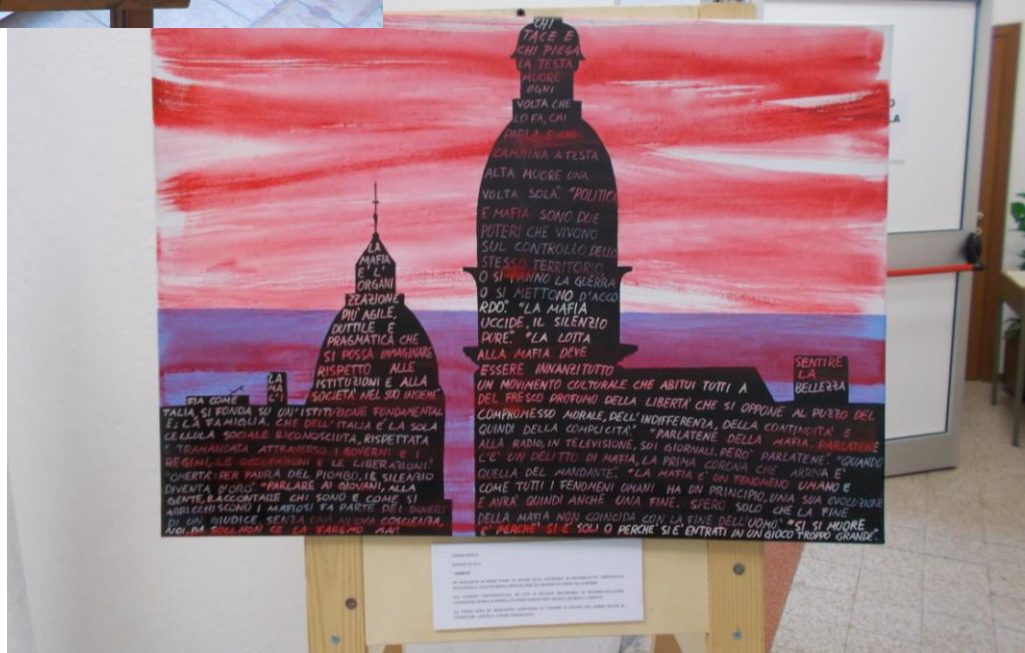 CHI
TACE E
CHI PIEGA
LA TESTA
MUORE
OGNI
VOLTA CHE
LO FA, CHI
PARLA E CHI
CAMMINA A TESTA
ALTA MUORE UNA
VOLTA SOLA". "POLITICA
E MAFIA SONO DUE
POTERI CHE VIVONO
SUL CONTROLLO DELLO
STESSO TERRITORIO,
O SI FANNO LA GUERRA
O SI METTONO D'ACCO
RDO". "LA MAFIA
UCCIDE, IL SILENZIO
PURE". "LA LOTTA
ALLA MAFIA DEVE
ESSERE INNANZITUTTO
UN MOVIMENTO CULTURALE CHE ABITUI TUTTI A
DEL FRESCO PROFUMO DELLA LIBERTÀ CHE SI OPPONE AL PUZZO DEL
COMPROMESSO MORALE, DELL'INDIFFERENZA, DELLA CONTIGUITÀ E
QUINDI DELLA COMPLICITÀ". "PARLATENE DELLA MAFIA PARLATENE
ALLA RADIO, IN TELEVISIONE, SUI GIORNALI. PERÒ PARLATENE". "QUANDO
C'È UN DELITTO DI MAFIA, LA PRIMA CORONA CHE ARRIVA È
QUELLA DEL MANDANTE". "LA MAFIA È UN FENOMENO UMANO E
COME TUTTI I FENOMENI UMANI HA UN PRINCIPIO, UNA SUA EVOLUZIONE
E AVRÀ QUINDI ANCHE UNA FINE. SPERO SOLO CHE LA FINE
DELLA MAFIA NON COINCIDA CON LA FINE DELL'UOMO". "SI SI MUORE
E PERCHÈ SI È SOLI O PERCHÈ SI È ENTRATI IN UN GIOCO TROPPO GRANDE".
SENTIRE
LA
BELLEZZA
LA
MAFIA
E' L'
ORGANI
ZZAZIONE
PIU' AGILE,
DUTTILE E
PRAGMATICA CHE
SI POSSA IMMAGINARE
RISPETTO ALLE
ISTITUZIONI E ALLA
SOCIETA' NEL SUO INSIEME"
LA
MA
L'I
FIA COME
TALIA, SI FONDA SU UN'ISTITUZIONE FONDAMENTAL
E; LA FAMIGLIA, CHE DELL'ITALIA È LA SOLA
CELLULA SOCIALE RICONOSCIUTA, RISPETTATA
E TRAMANDATA ATTRAVERSO I GOVERNI E I
REGIMI, LE OCCUPAZIONI E LE LIBERAZIONI".
"OMERTÀ: PER PAURA DEL PIOMBO, IL SILENZIO
DIVENTA D'ORO" "PARLARE AI GIOVANI, ALLA
GENTE, RACCONTARE CHI SONO E COME SI
ARRICCHISCONO I MAFIOSI FA PARTE DEI DOVERI
DI UN GIUDICE. SENZA UNA NUOVA COSCIENZA,
NOI, DA SOLI, NON CE LA FAREMO MAI"